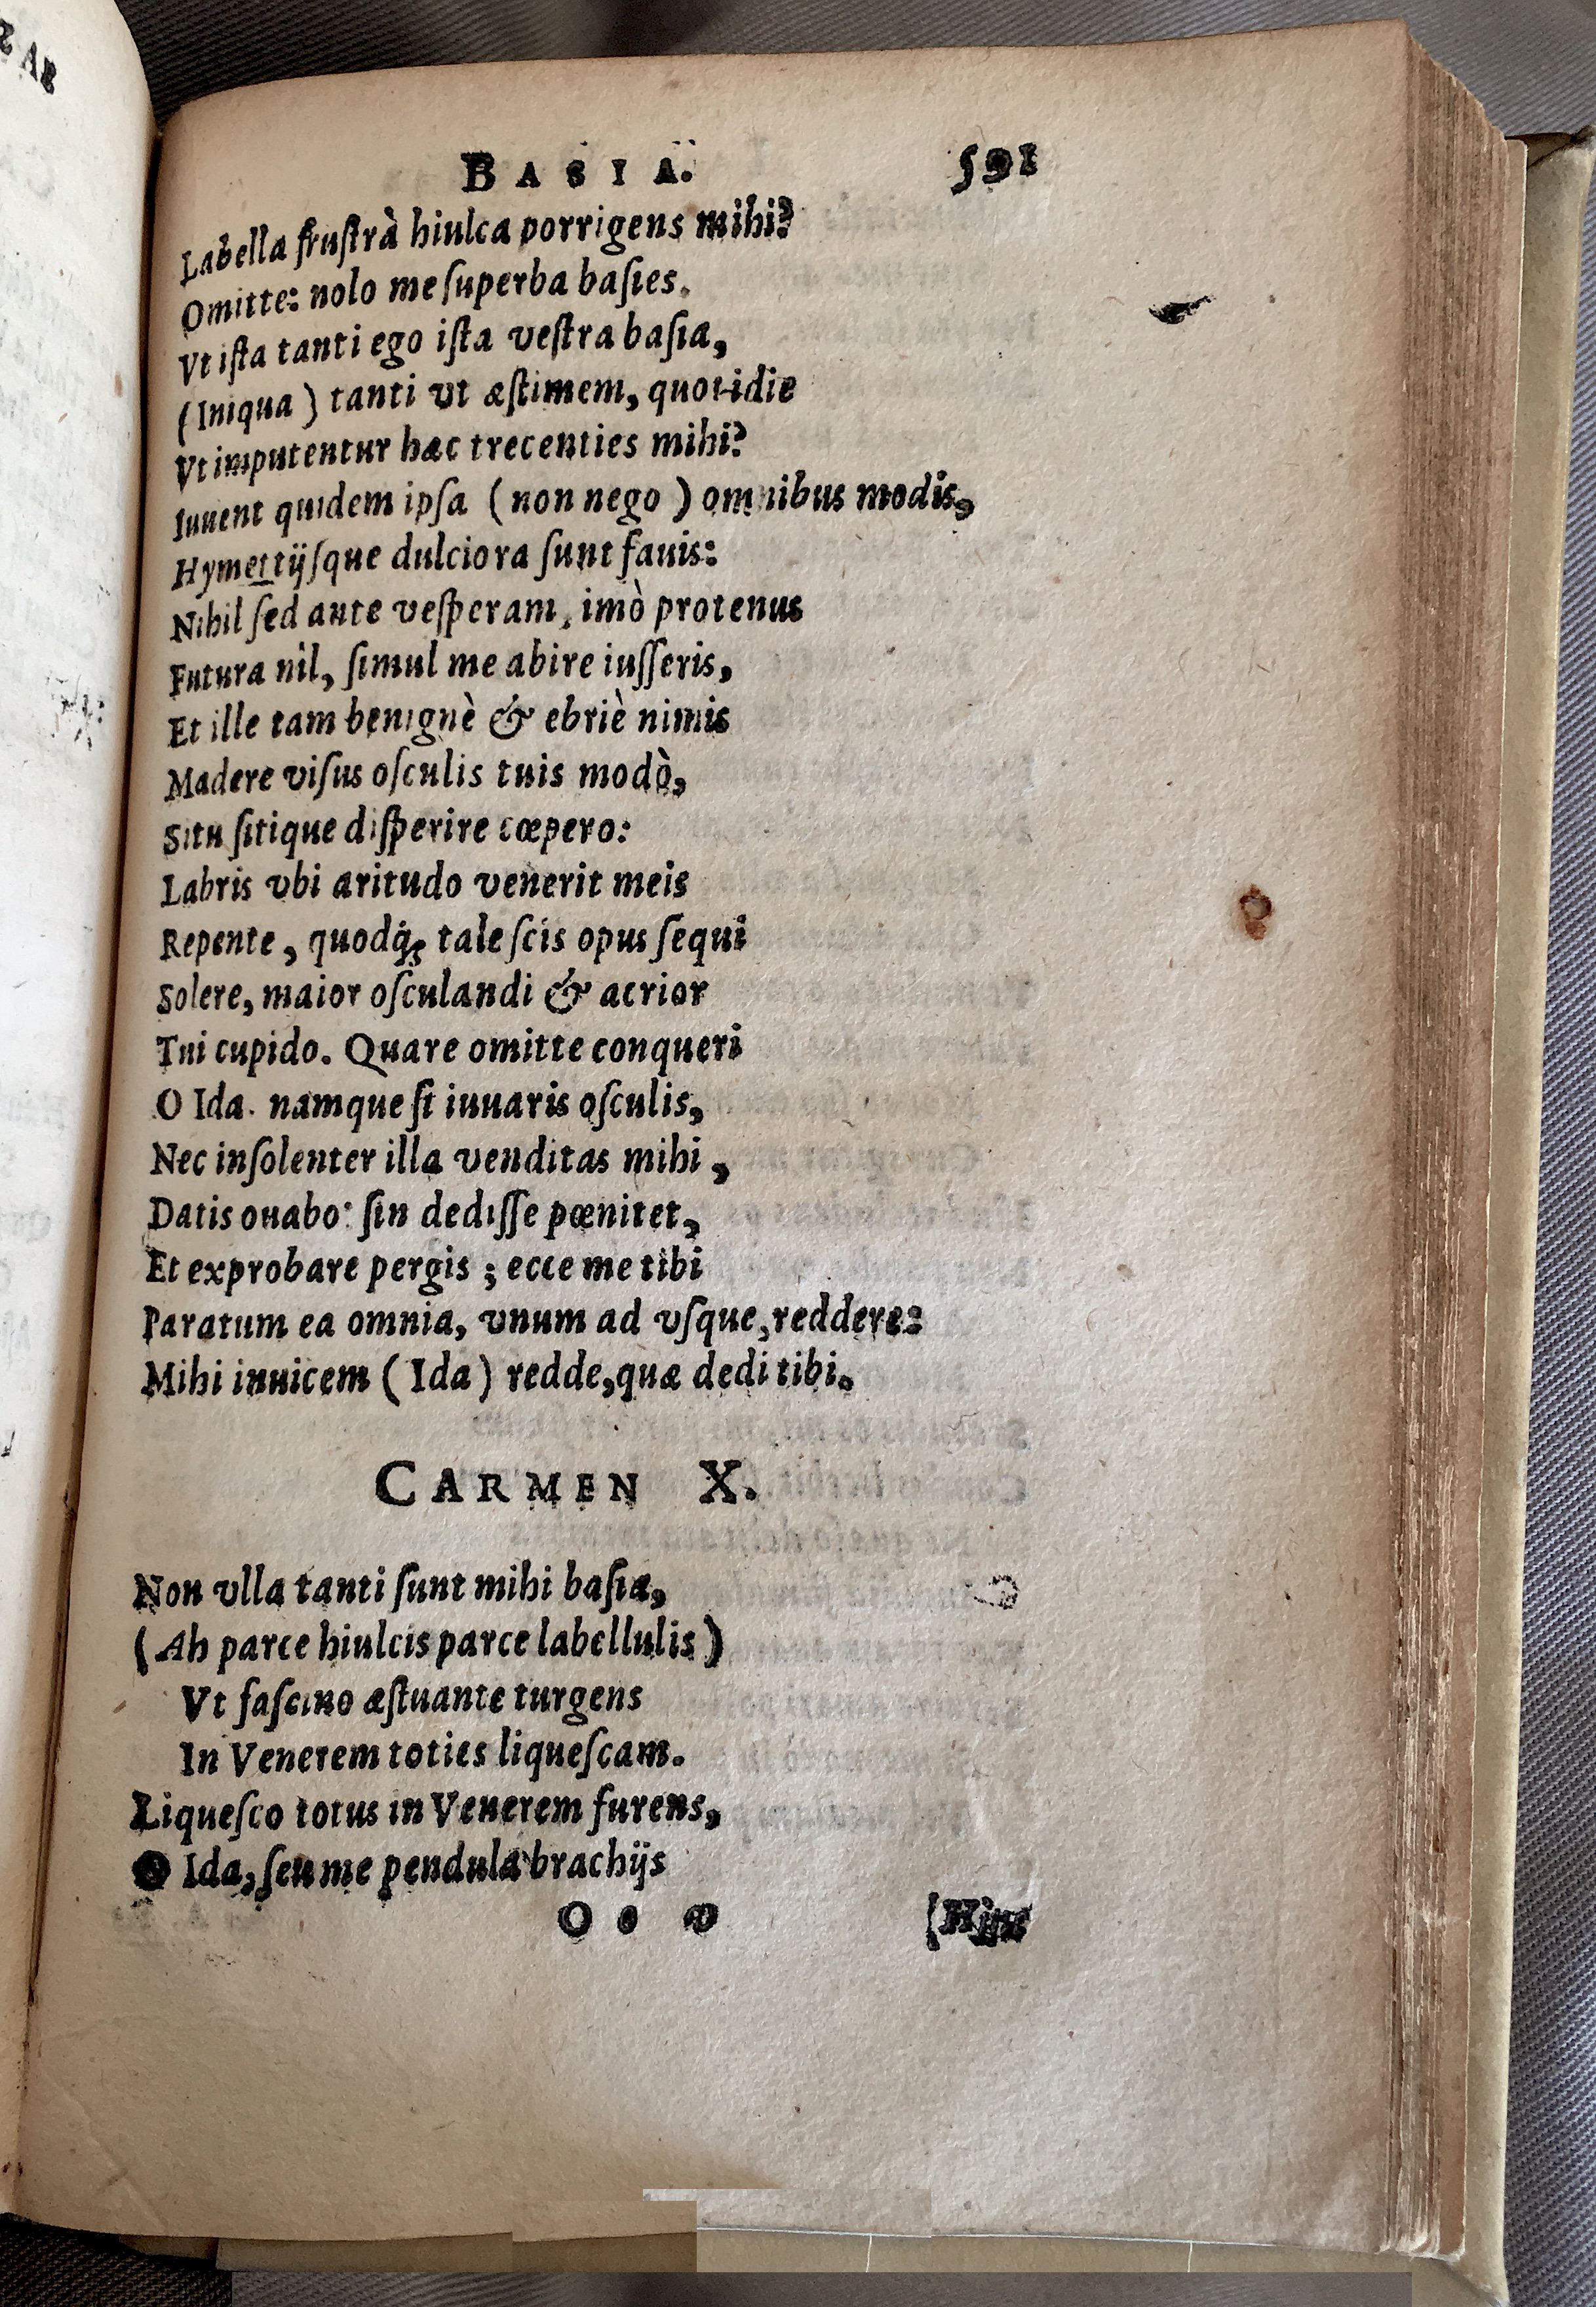 BASIA. 591
Labella frustrà hiulca porrigens mihi?
Omitte: nolo me superba basies.
Vt ista tanti ego ista vestra basia,
(Iniqua) tanti vt æstimem, quotidie
Vt imputentur hæc trecenties mihi?
Iuuent quidem ipsa (non nego) omnibus modis,
Hymettijsque dulciora sunt fauis:
Nihil sed ante vesperam, imò protenus
Futura nil, simul me abire iusseris,
Et ille tam benignè & ebriè nimis
Madere visus osculis tuis modò,
Situ sitique disperire cœpero:
Labris vbi aritudo venerit meis
Repente, quodq́; tale scis opus sequi
Solere, maior osculandi & acrior
Tui cupido. Quare omitte conqueri
O Ida. namque si iuuaris osculis,
Nec insolenter illa venditas mihi,
Datis ouabo: sin dedisse pœnitet,
Et exprobare pergis; ecce me tibi
Paratum ea omnia, vnum ad vsque, reddere:
Mihi inuicem (Ida) redde, quæ dedi tibi.
CARMEN X.
Non vlla tanti sunt mihi basia,
(Ah parce hiulcis parce labellulis)
Vt fascino æstuante turgens
In Venerem toties liquescam.
Liquesco totus in Venerem furens,
O Ida, seu me pendula brachijs
O o v